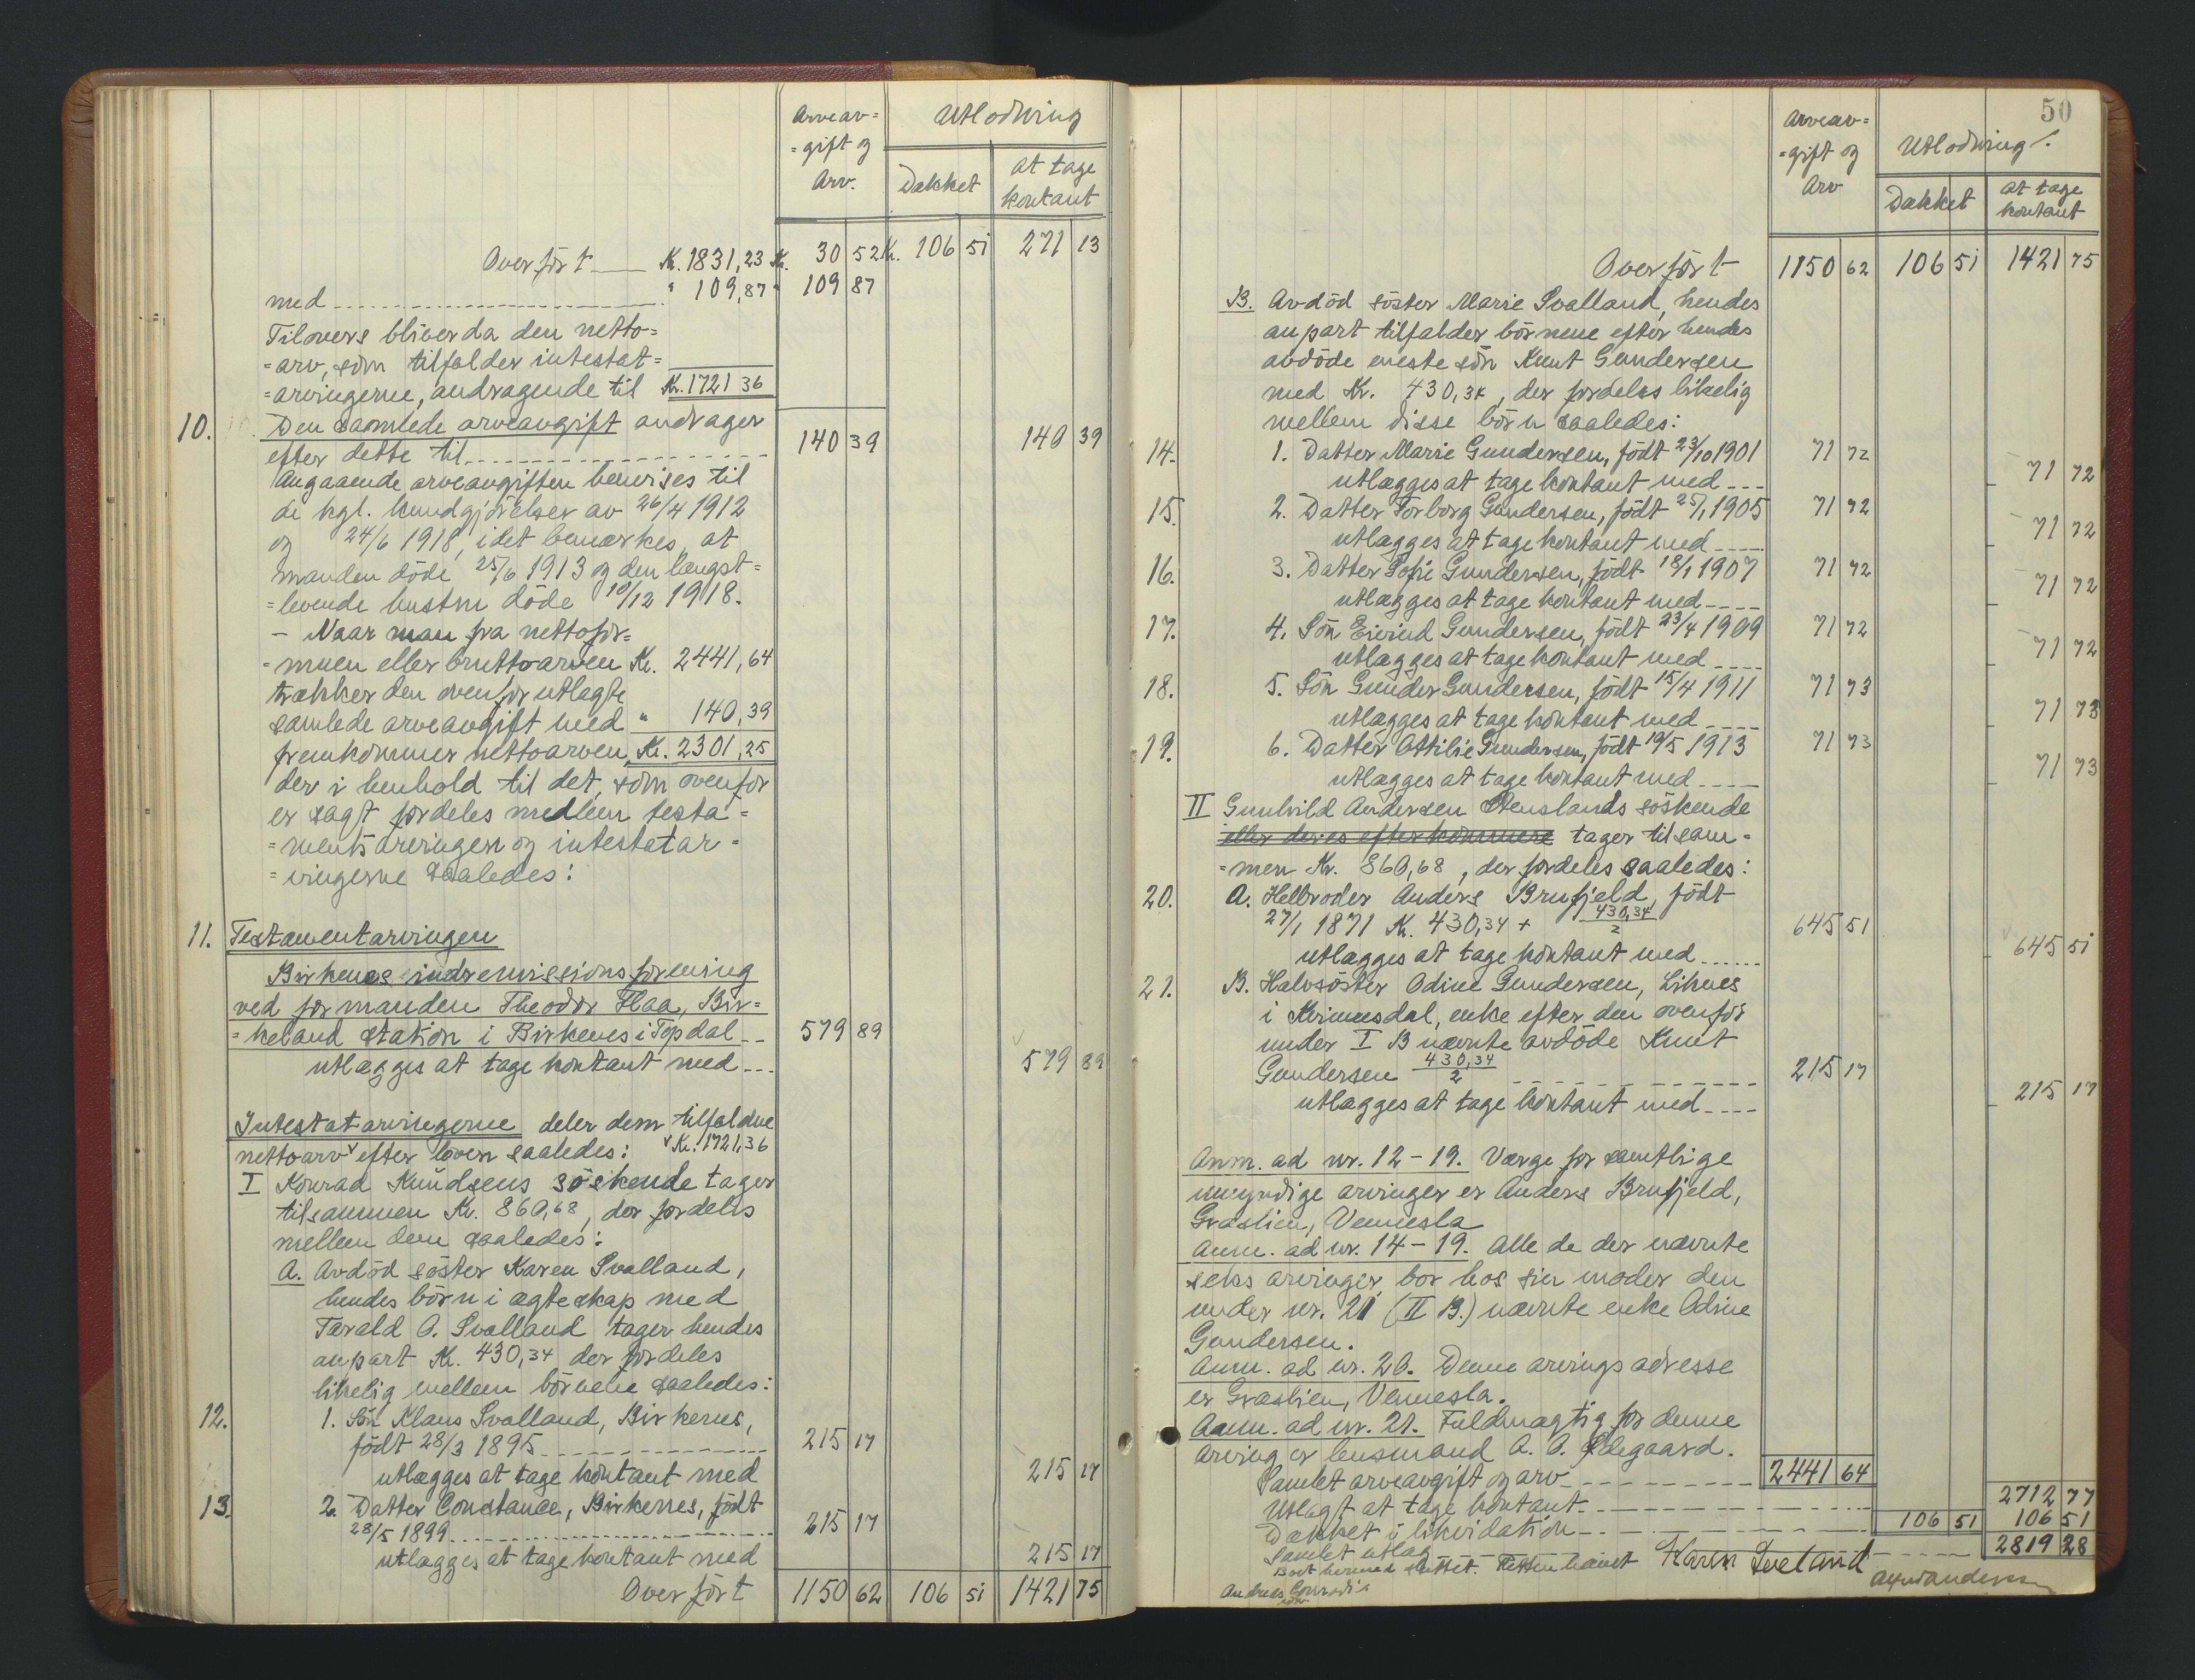 Arveav=
=gift og
Arv.
Utlodning
Dækket
at tage
kontant
Overført K. 1831,23 K. 30 52 K. 106 51 271 13
med " 109,87 " 109 87
Tilovers bliver da den netto=
=arv, som tilfalder intestat=
=arvingerne, andragende til Kr. 1721 36
10. Den samlede arveavgift andrager
efter dette til 140 39 140 39
Angaaende arveavgiften henvises til
de kgl. kundgjørelser av 26/4 1912
og 24/6 1918, idet bemærkes, at
manden døde 25/6 1913 og den længst=
=levende hustru døde 10/12 1918.
– Naar man fra nettofor=
=muen eller bruttoarven Kr. 2441,64
trækker den ovenfor utlagte
samlede arveavgift med " 140,39
fremkommer nettoarven Kr. 2301,25
der i henhold til det, som ovenfor
er sagt fordeles mellem testa=
=mentsarvingen og intestatar=
=vingerne saaledes:
11. Testamentarvingen
Birkenes indremissionsforening
ved formanden Theodor Flaa, Bir=
=keland station i Birkenes i Topdal 579 89
utlægges at tage kontant med 579 89
Intestatarvingerne deler dem tilfaldne
nettoarv ᵛ efter loven saaledes: ᵛ Kr. 1721,36
I Konrad Knudsens søskende tager
tilsammen Kr. 860,68, der fordeles
mellem dem saaledes:
A. Avdød søster Karen Svalland,
hendes børn i ægteskap med
Tarald O. Svalland tager hendes
anpart Kr. 430,34 der fordeles
likelig mellem børnene saaledes:
12. 1. Søn Klaus Svalland, Birkenes,
født 28/3 1895 215 17
utlægges at tage kontant med 215 17
13. 2. Datter Constance, Birkenes, født
28/5 1899 215 17
utlægges at tage kontant med 215 17
Overført 1150 62 106 51 1421 75
50
Arveav=
=gift og
Arv
Utlodning.
Dækket
at tage
kontant
Overført 1150 62 106 51 1421 75
B. Avdød søster Marie Svalland, hendes
anpart tilfalder børnene efter hendes
avdøde eneste søn Knut Gundersen
med Kr. 430,34, der fordeles likelig
mellem disse børn saaledes:
14. 1. Datter Marie Gundersen, født 23/10 1901 71 72
utlægges at tage kontant med 71 72
15. 2. Datter Torborg Gundersen, født 25/1 1905 71 72
utlægges at tage kontant med 71 72
16. 3. Datter Sofie Gundersen, født 18/1 1907 71 72
utlægges at tage kontant med 71 72
17. 4. Søn Eivind Gundersen, født 23/4 1909 71 72
utlægges at tage kontant med 71 72
18. 5. Søn Gunder Gundersen, født 15/4 1911 71 73
utlægges at tage kontant med 71 73
19. 6. Datter Ottilie Gundersen, født 19/5 1913 71 73
utlægges at tage kontant med 71 73
II Gunhild Andersen Stenslands søskende
eller deres efterkommere tager tilsam=
=men Kr. 860,68, der fordeles saaledes:
20. A. Helbroder Anders Brufjeld, født
27/1 1871 Kr. 430,34 + 430,34/2 645 51
utlægges at tage kontant med 645 51
21. B. Halvsøster Odine Gundersen, Liknes
i Kvinesdal, enke efter den ovenfor
under I B nævnte avdøde Knut
Gundersen 430,34/2 215 17
utlægges at tage kontant med 215 17
Anm. ad nr. 12–19. Værge for samtlige
umyndige arvinger er Anders Brufjeld,
Graslien, Vennesla
Anm. ad nr. 14–19. Alle de der nævnte
seks arvinger bor hos sin moder den
under nr. 21 (II B.) nævnte enke Odine
Gundersen.
Anm. ad nr. 20. Denne arvings adresse
er Graslien, Vennesla.
Anm. ad nr. 21. Fuldmægtig for denne
arving er lensmand A. O. Ødegaard.
Samlet arveavgift og arv 2441 64
Utlagt at tage kontant 2712 77
Dækket i likvidation 106 51 106 51
Samlet utlæg 2819 28
Boet hermed sluttet. Retten hævet Karen Sveland
Andreas Conradi